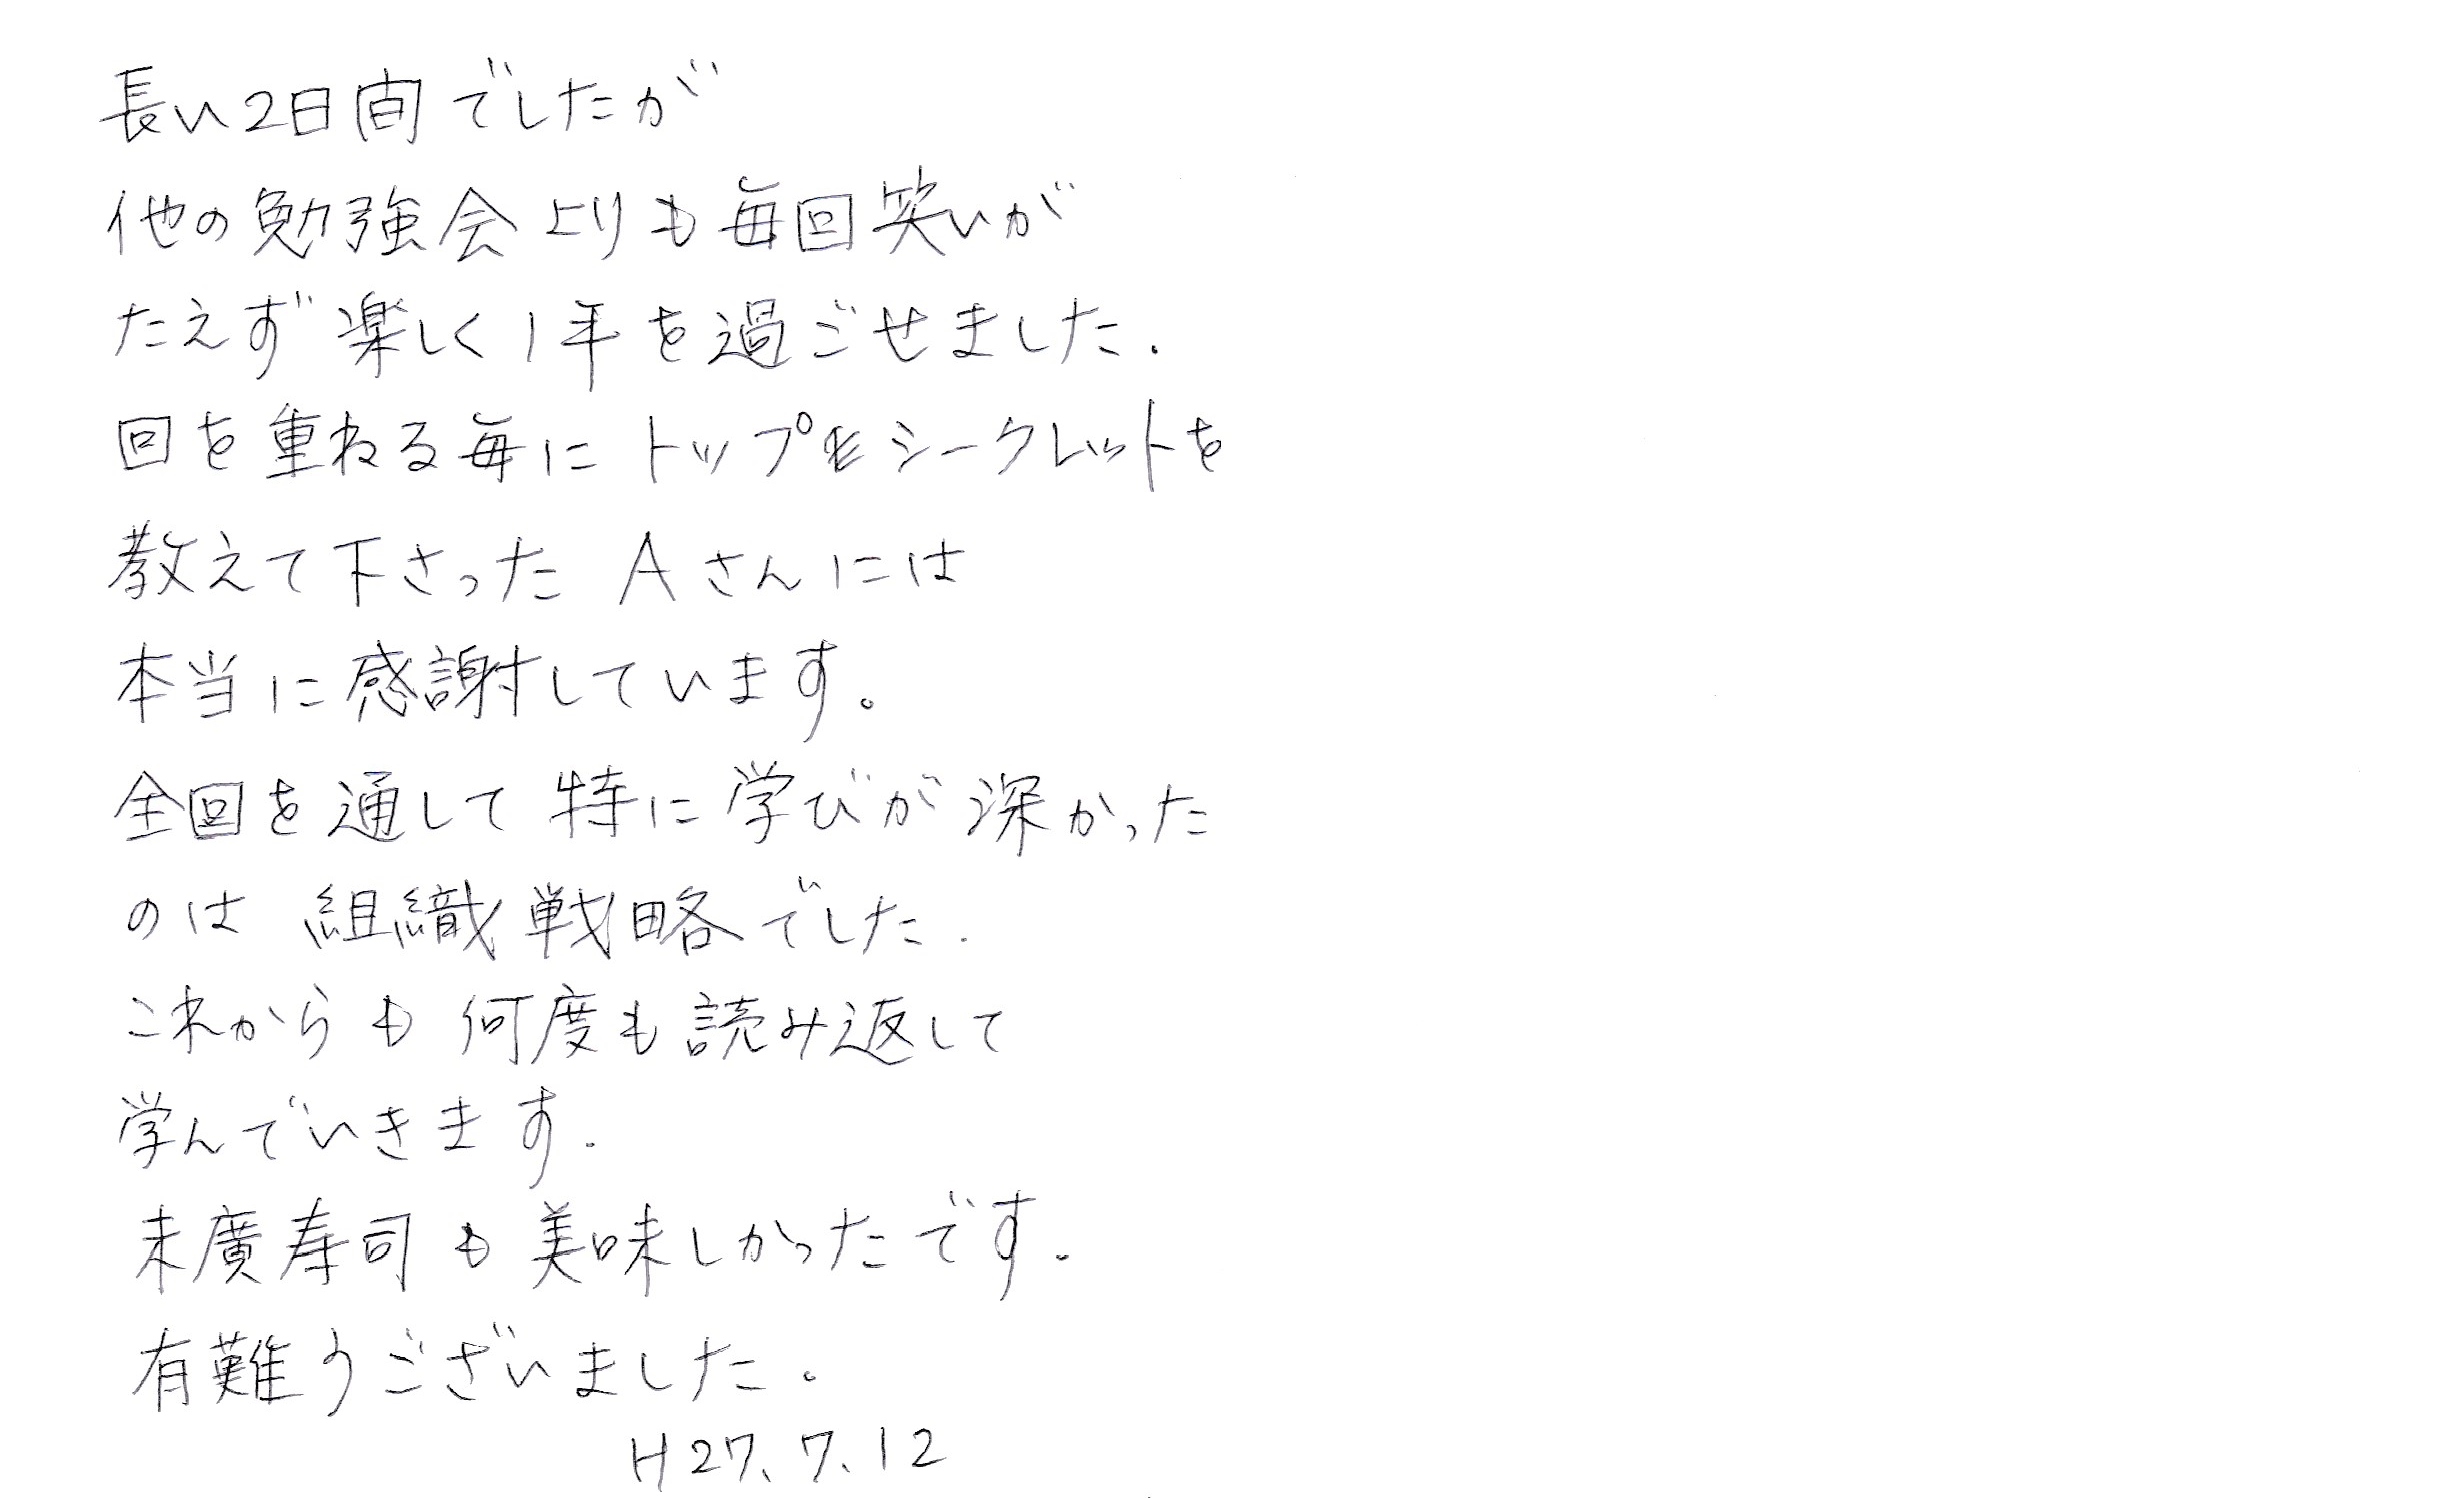 長い2日間でしたが
他の勉強会よりも毎回笑いが
たえず楽しく1年を過ごせました.
回を重ねる毎にトップシークレットを
教えて下さった Aさんには
本当に感謝しています。
全回を通して特に学びが深かった
のは 組織戦略でした.
これからも何度も読み返して
学んでいきます.
末廣寿司も美味しかったです.
有難うございました.
H27.7.12